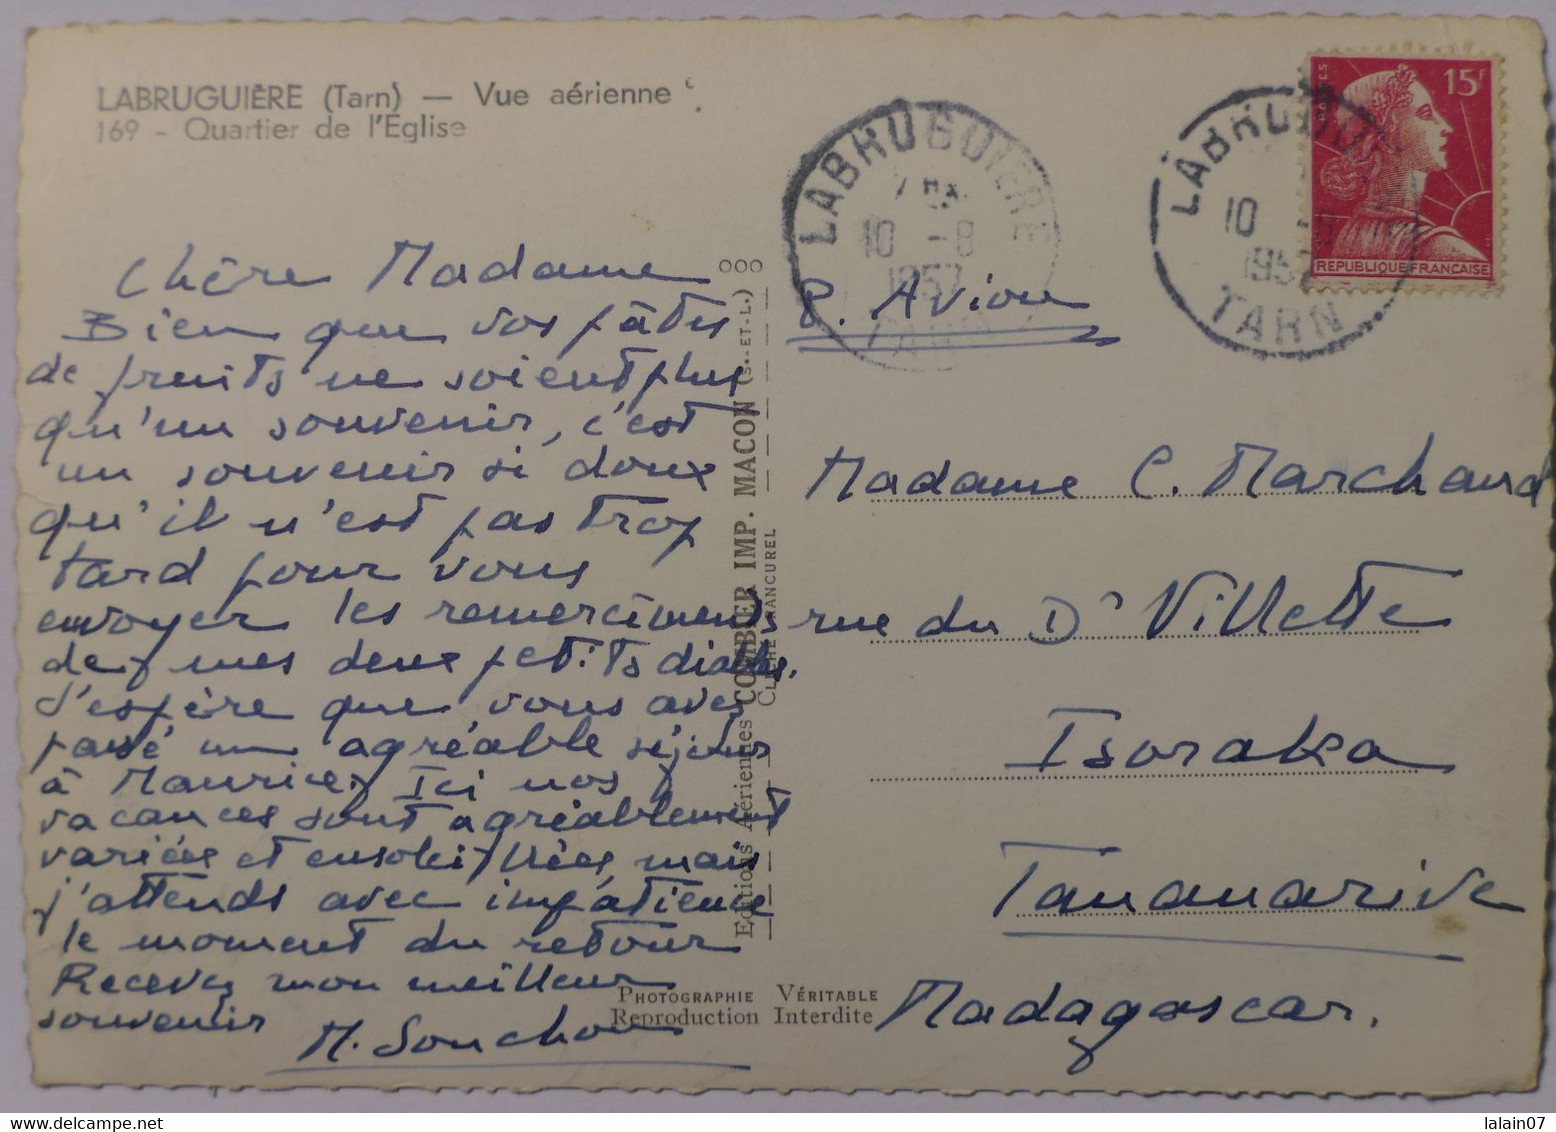 LABRUGUIÈRE (Tarn) — Vue aérienne
169 - Quartier de l'Église
Chère Madame
Bien que vos pâtes
de fruits ne soient plus
qu'un souvenir, c'est
un souvenir si doux
qu'il n'est pas trop
tard pour vous
envoyer les remerciements
de mes deux petits diables.
J'espère que vous avez
passé un agréable séjour
à Maurice. Ici nos
vacances sont agréablement
variées et ensoleillées, mais
j'attends avec impatience
le moment du retour
Recevez mon meilleur
souvenir
M. Souchon
Editions Aériennes COMBIER IMP. MACON (S.-ET-L.) ooo
CLICHÉ FRANCUREL
PHOTOGRAPHIE VÉRITABLE
Reproduction Interdite
LABRUGUIERE
10 -8
1957
TARN
LABRUGUI
10 -8
1957
TARN
POSTES
15F
REPUBLIQUE FRANCAISE
P. Avion
Madame C. Marchand
rue du Dr Villette
Isoraka
Tananarive
Madagascar.
lalain07